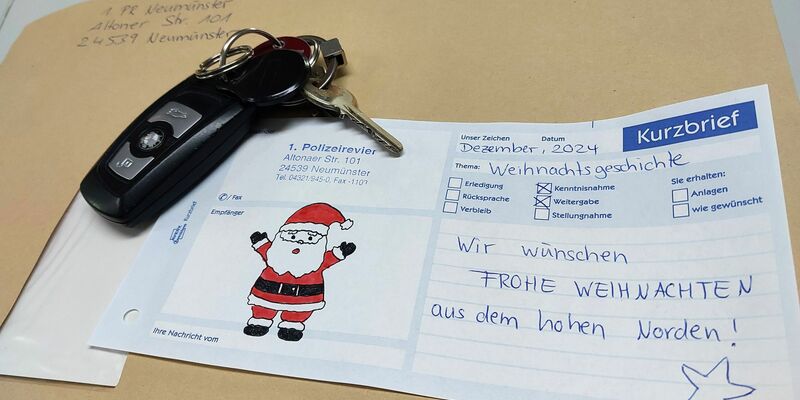 1 PR Neumünster
Altoner Str. 101
24539 Neumünster
1. Polizeirevier
Altonaer Str. 101
24539 Neumünster
Tel. 04321/945-0, Fax -1109
✆/ Fax
Empfänger
Ihre Nachricht vom
Kurzbrief
Unser Zeichen Datum
Dezember, 2024
Kurzbrief
Thema: Weihnachtsgeschichte
Erledigung
Rücksprache
Verbleib
Kenntnisnahme
Weitergabe
Stellungnahme
Sie erhalten:
Anlagen
wie gewünscht
Wir wünschen
FROHE WEIHNACHTEN
aus dem hohen Norden!